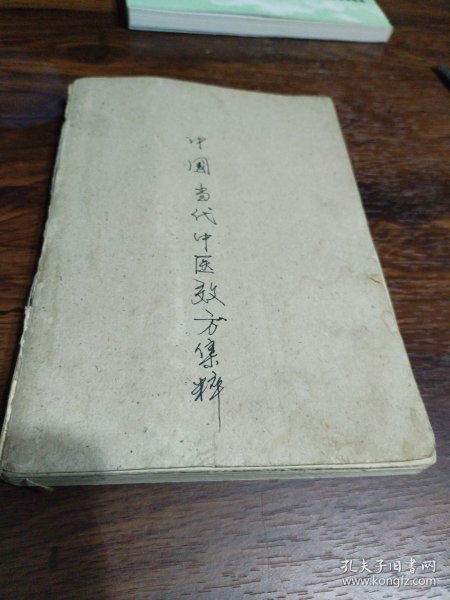 中国当代中医效方集粹
孔夫子旧书网
www.kongfz.com